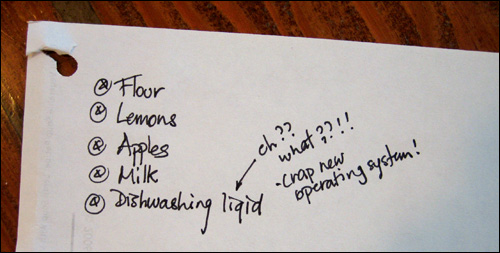 Flour
Lemons
Apples
Milk
Dishwashing liqid
eh??
what??!!
-crap new
operating system!